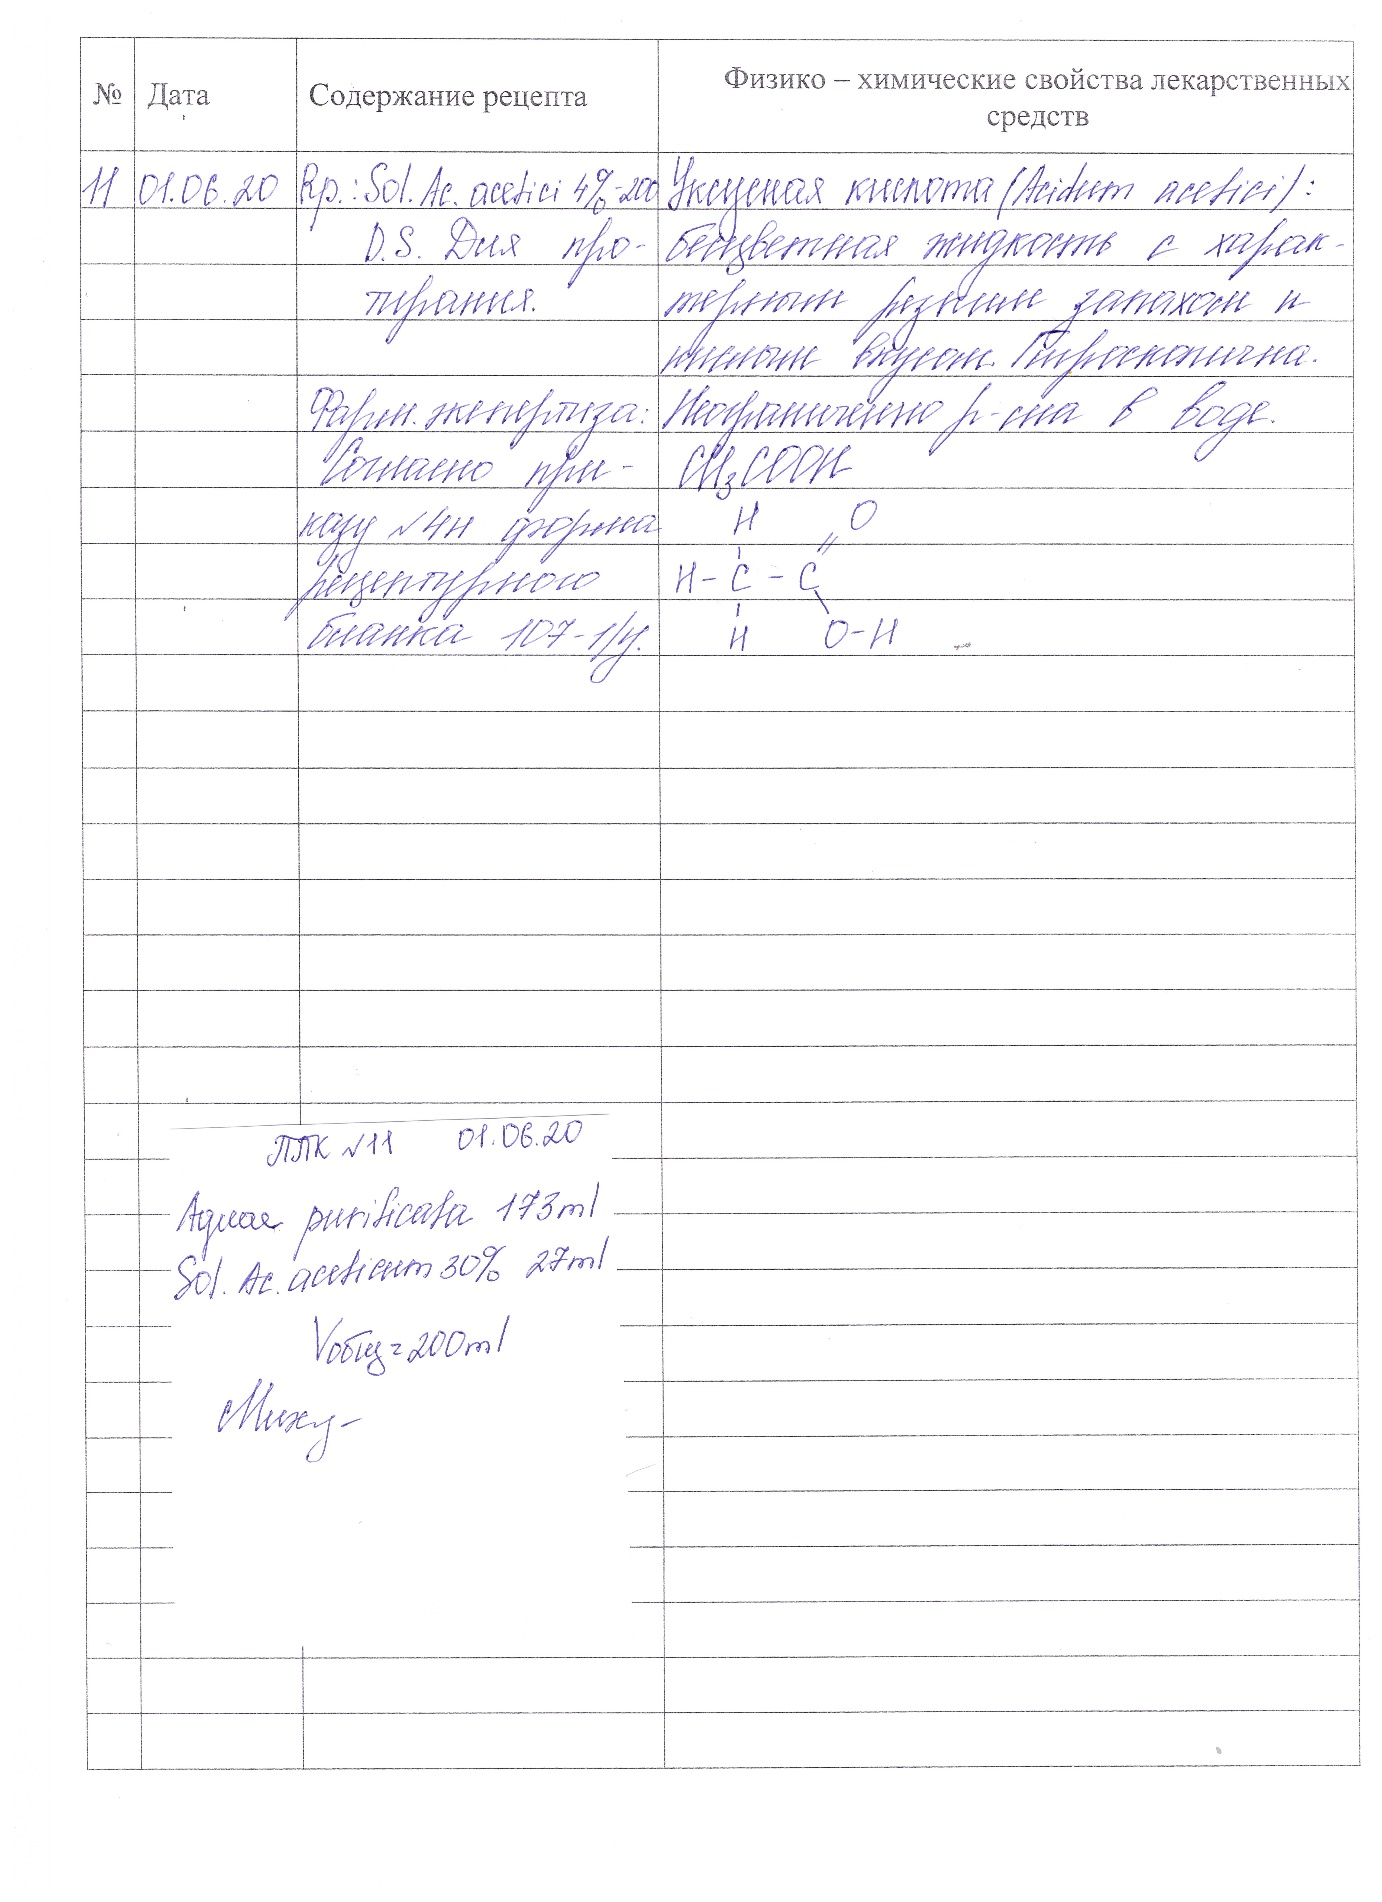 №
Дата
Содержание рецепта
Физико – химические свойства лекарственных
средств
11
01.06.20
Rp.: Sol. Ac. acetici 4%-200
D.S. Для про-
тирания.
Фарм. экспертиза:
Согласно при-
казу №4н форма
рецептурного
бланка 107-1/у.
Уксусная кислота (Acidum acetici):
бесцветная жидкость с харак-
терным резким запахом и
кислым вкусом. Гигроскопична.
Неограниченно р-има в воде.
CH₃COOH
H O
H - C - C
H O-H
ППК №11 01.06.20
Aquae purificata 173ml
Sol. Ac. aceticum 30% 27ml
Vобщ = 200ml